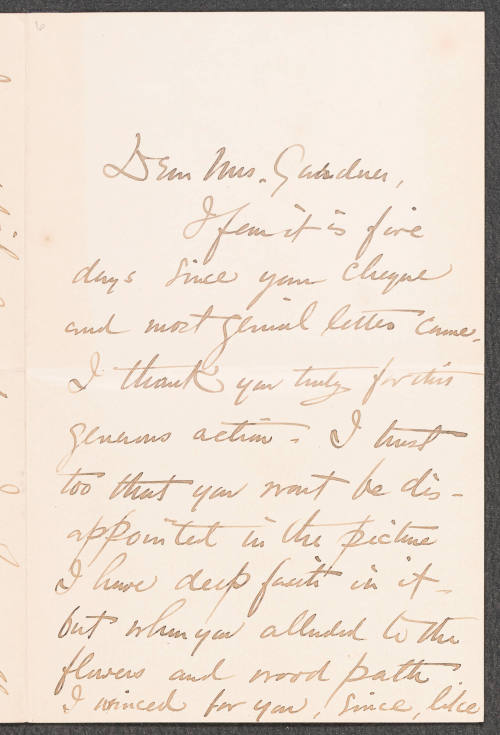 Dear Mrs. Gardner,
I fear it is five
days since your cheque
and most genial letter came.
I thank you truly for this
generous action - I trust
too that you wont be dis-
appointed in the picture
I have deep faith in it -
but when you alluded to the
flowers and wood path
I winced for you, since, like